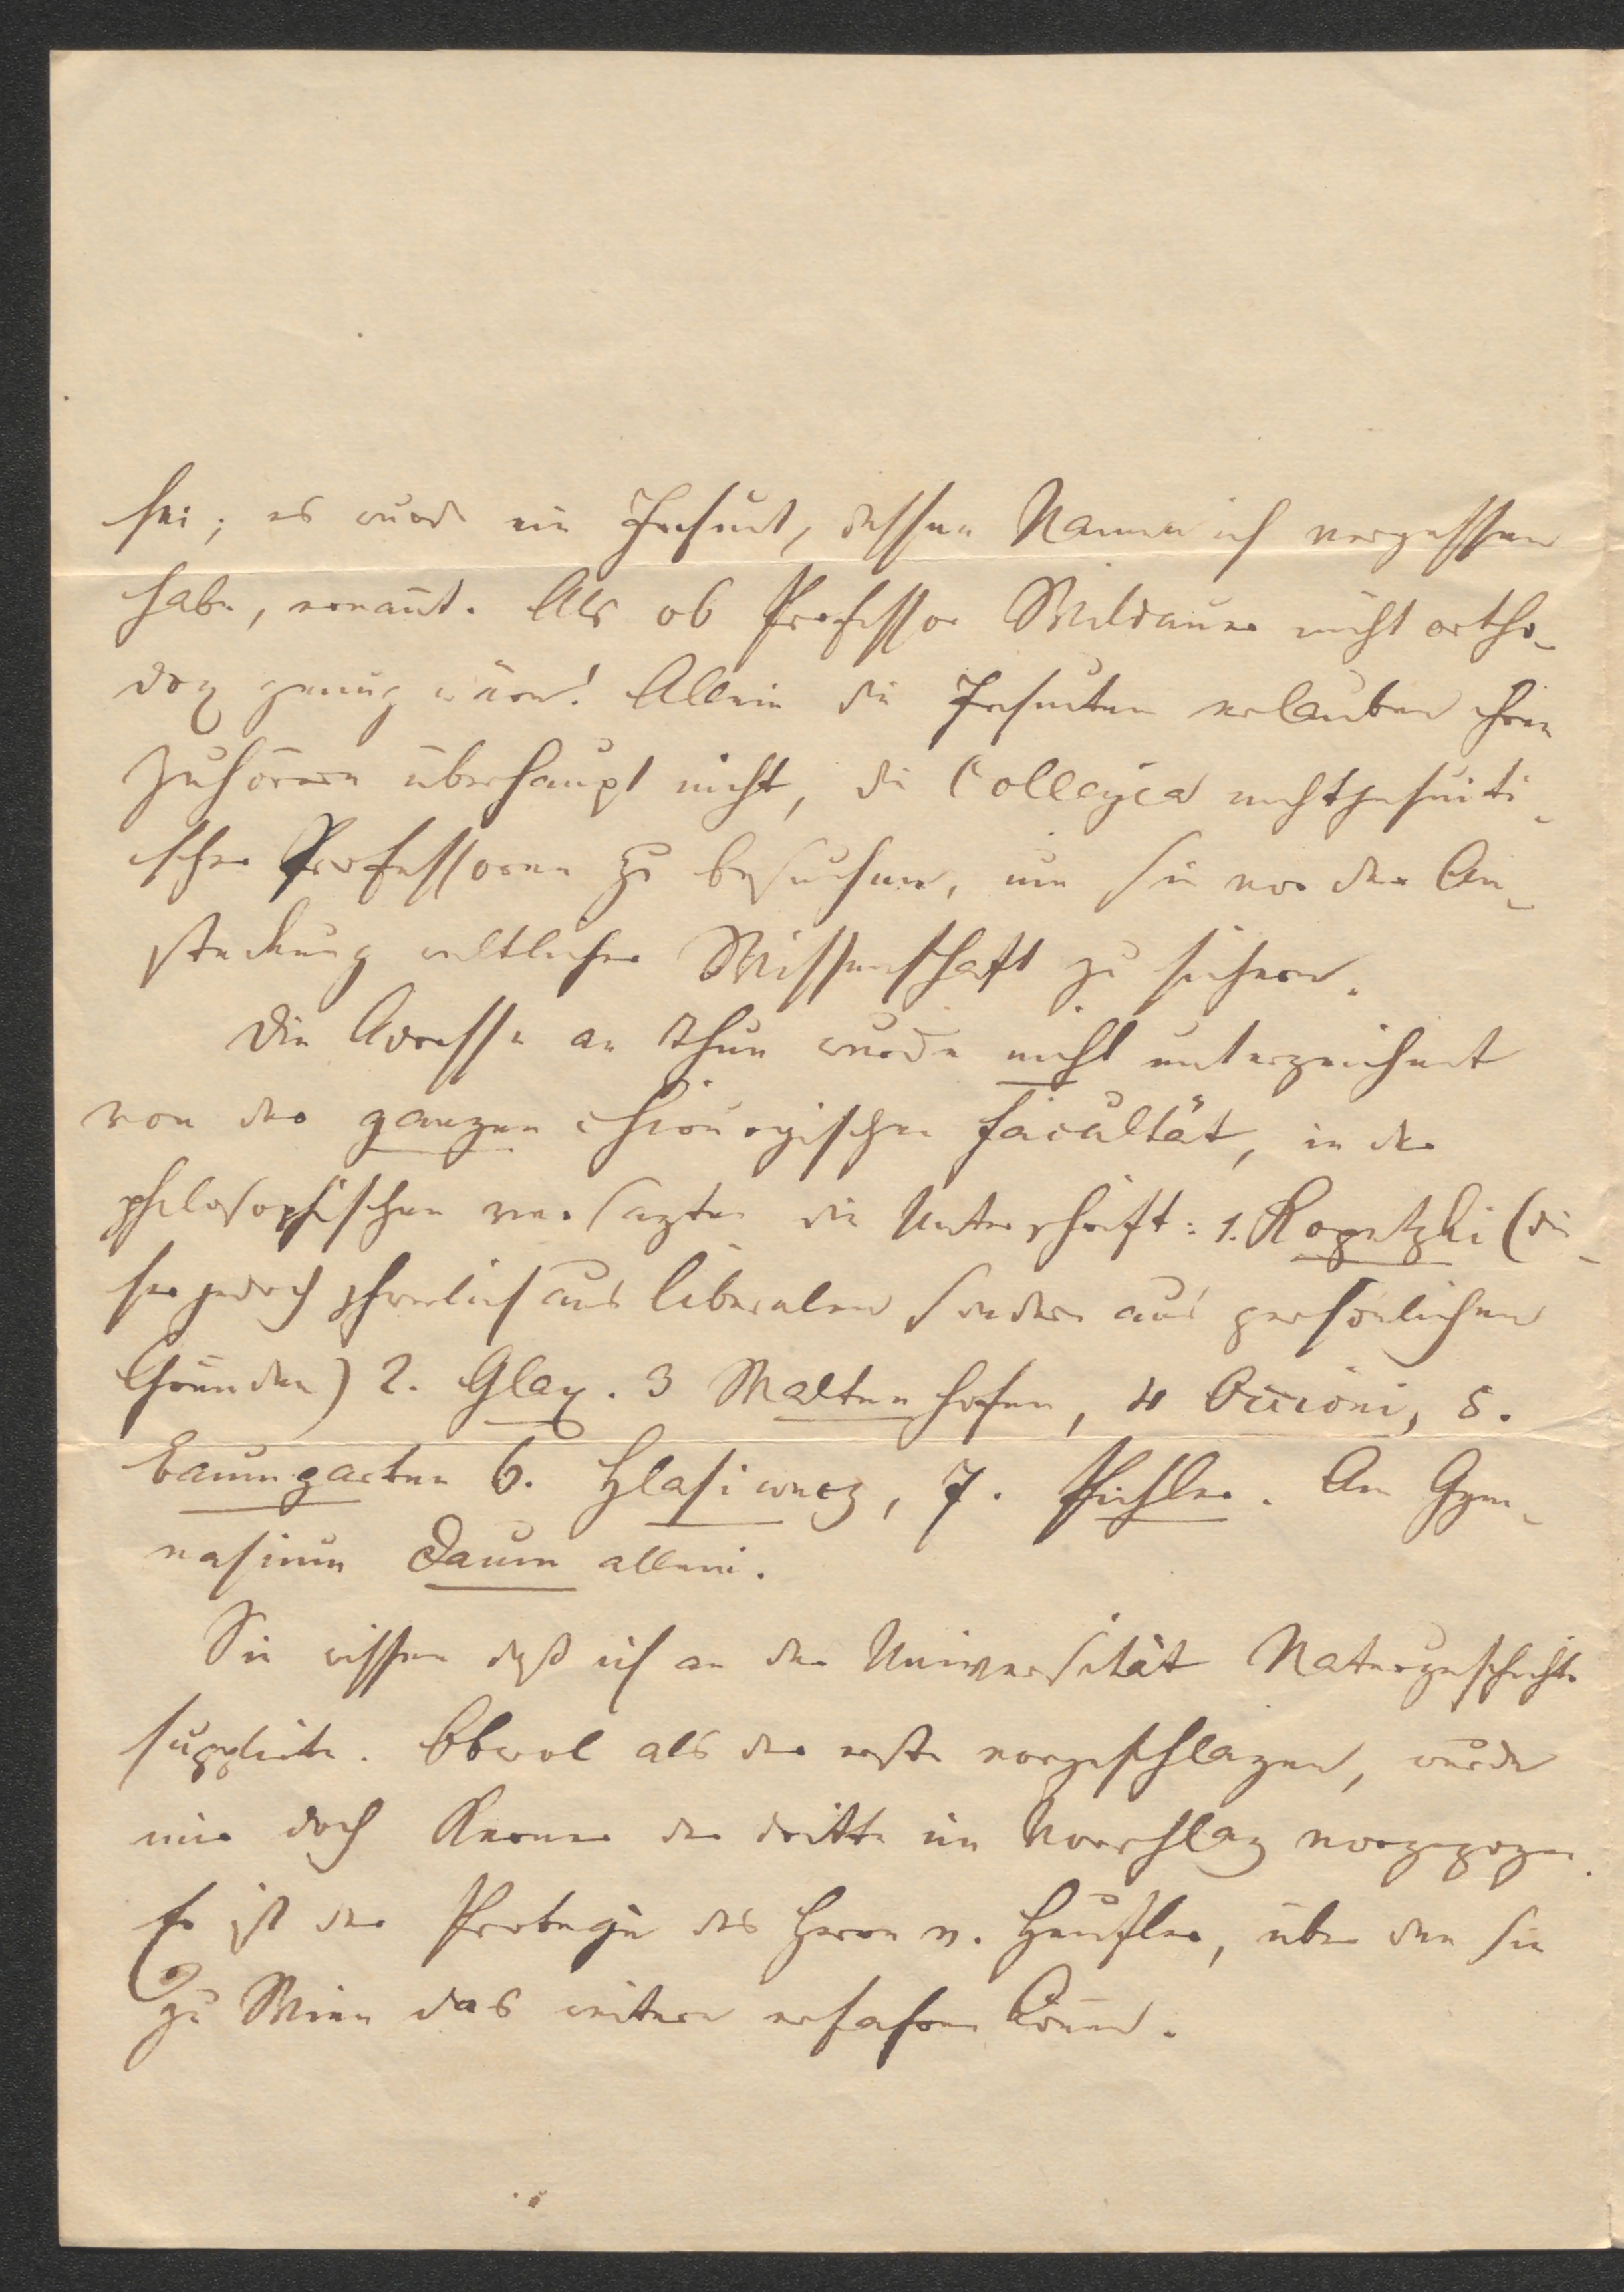 sei; es wurde ein Jesuit, dessen Namen ich vergessen
habe, ernannt. Als ob Professor Wildauer nicht ortho-
dox genug wäre! Allein die Jesuiten erlauben ihren
Zuhörern überhaupt nicht, die Collegien nichtjesuiti-
scher Professoren zu besuchen, um sie vor der An-
steckung weltlicher Wissenschaft zu sichern.
Die Adresse an Thun wurde nicht unterzeichnet
von der ganzen chirurgischen Facultät, in der
philosophischen versagten die Unterschrift: 1. Kopetzki (die-
ser jedoch schwerlich aus liberalen sondern aus persönlichen
Gründen) 2. Glax. 3 Maltenhofen, 4 Occioni, 5.
Baumgarten 6. Hlasiwez, 7. Pichler. Am Gym-
nasium Daum allein.
Sie wissen daß ich an der Universität Naturgeschichte
supplirte. Obwol als der erste vorgeschlagen, wurde
mir doch Kerner der dritte im Vorschlag vorgezogen.
Er ist der Protegé des Herrn v. Heufler, über den Sie
zu Wien das weitere erfahren können.